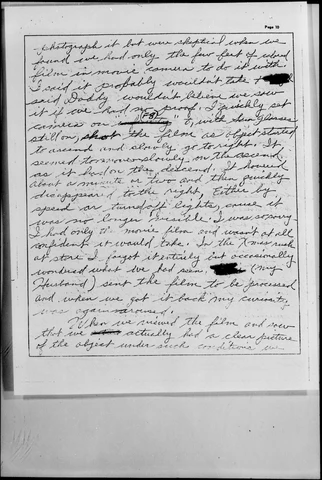 Page 10
photograph it but were skeptical when we
found we had only the few feet of colored
film in movie camera to do it with.
I said it probably wouldn't take &
said Daddy wouldn't believe we saw
it if we had no proof. I quickly set
camera on "F8", with Sun Glasses
still on, shot the film as object started
to ascend and slowly go to right. It
seemed to move slowly on the ascend
as it had on the descend. It hovered
about a minute or two and then quickly
disappeared to the right, Either by
speed or turned off lights, cause it
was no longer visible. I was so sorry
I had only movie film and wasn't at all
confident it would take. In the Xmas rush
at store I forgot it entirely but occasionally
wondered what we had seen. (my
Husband) sent the film to be processed
and when we got it back my curiosity
was again aroused.
When we viewed the film and saw
that we actually had a clear picture
of the object under such conditions we